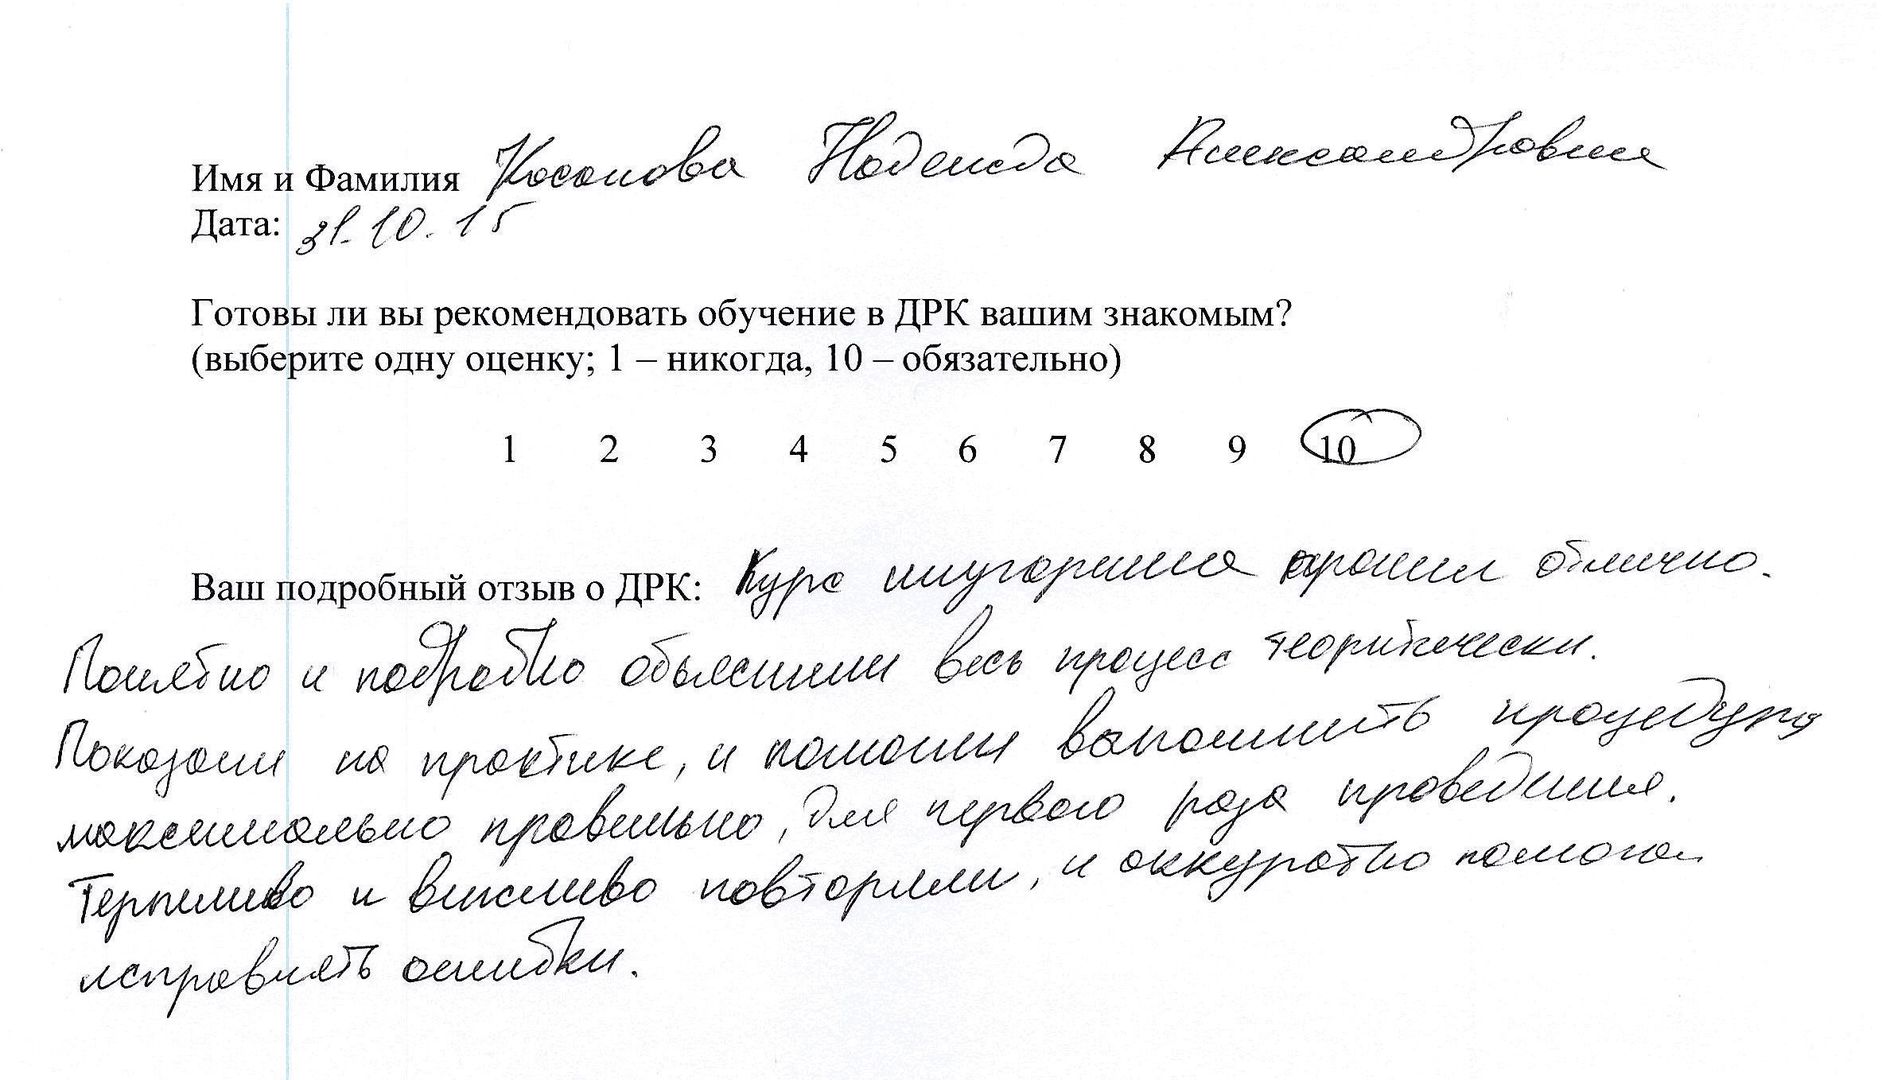 Имя и Фамилия Косапова Надежда Александровна
Дата: 31.10.15
Готовы ли вы рекомендовать обучение в ДРК вашим знакомым?
(выберите одну оценку; 1 – никогда, 10 – обязательно)
1 2 3 4 5 6 7 8 9 10
Ваш подробный отзыв о ДРК: Курс шугаринга прошел отлично.
Понятно и подробно объяснили весь процесс теоритически.
Показали на практике, и помогли выполнить процедуру
максимально правильно, для первого раза проведения.
Терпиливо и вежливо повторяли, и аккуратно помогали
исправлять ошибки.